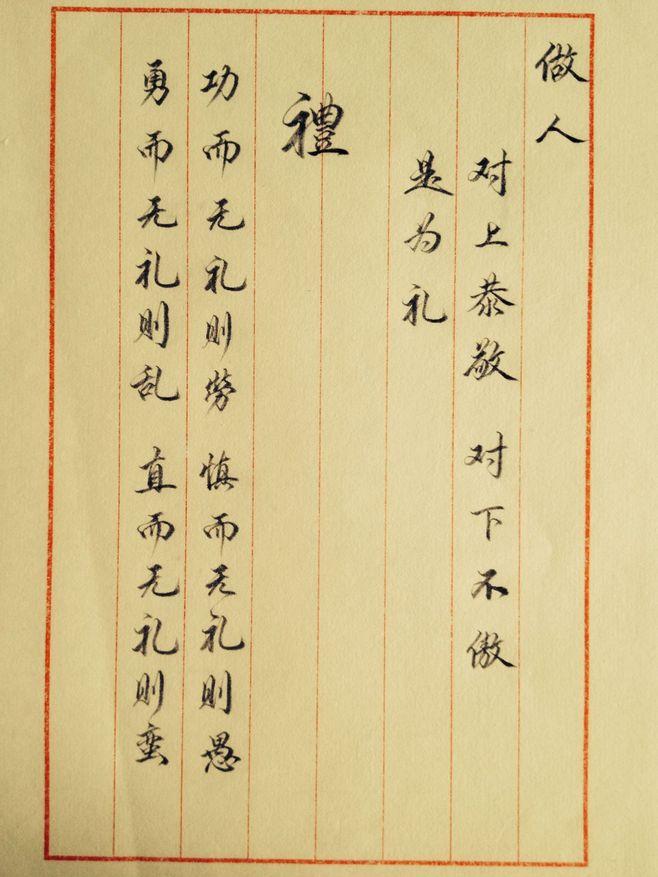 做人
对上恭敬 对下不傲
是为礼
禮
功而无礼则劳 慎而无礼则愚
勇而无礼则乱 直而无礼则蛮